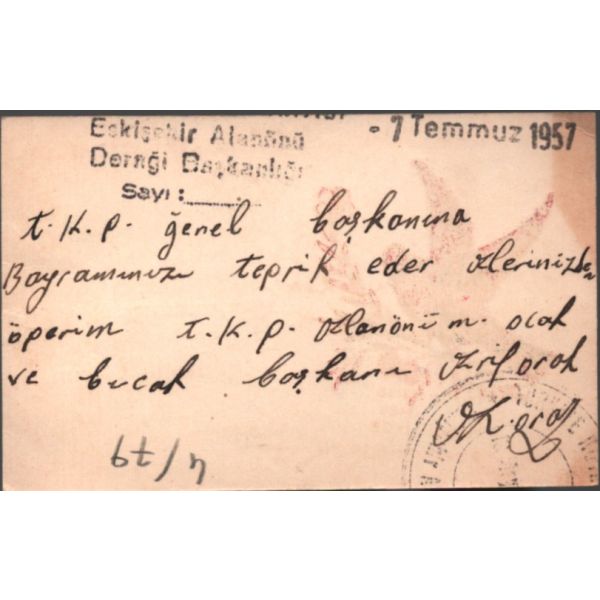 Eskişekir Alanönü
Derneği Başkanlığı
Sayı :
- 7 Temmuz 1957
t.K.p. ğenel başkanına
Bayramınızı teprik eder ellerinizden
öperim t.K.p. Alanönü m. ocak
ve bucak başkanı Arif orak
4/79